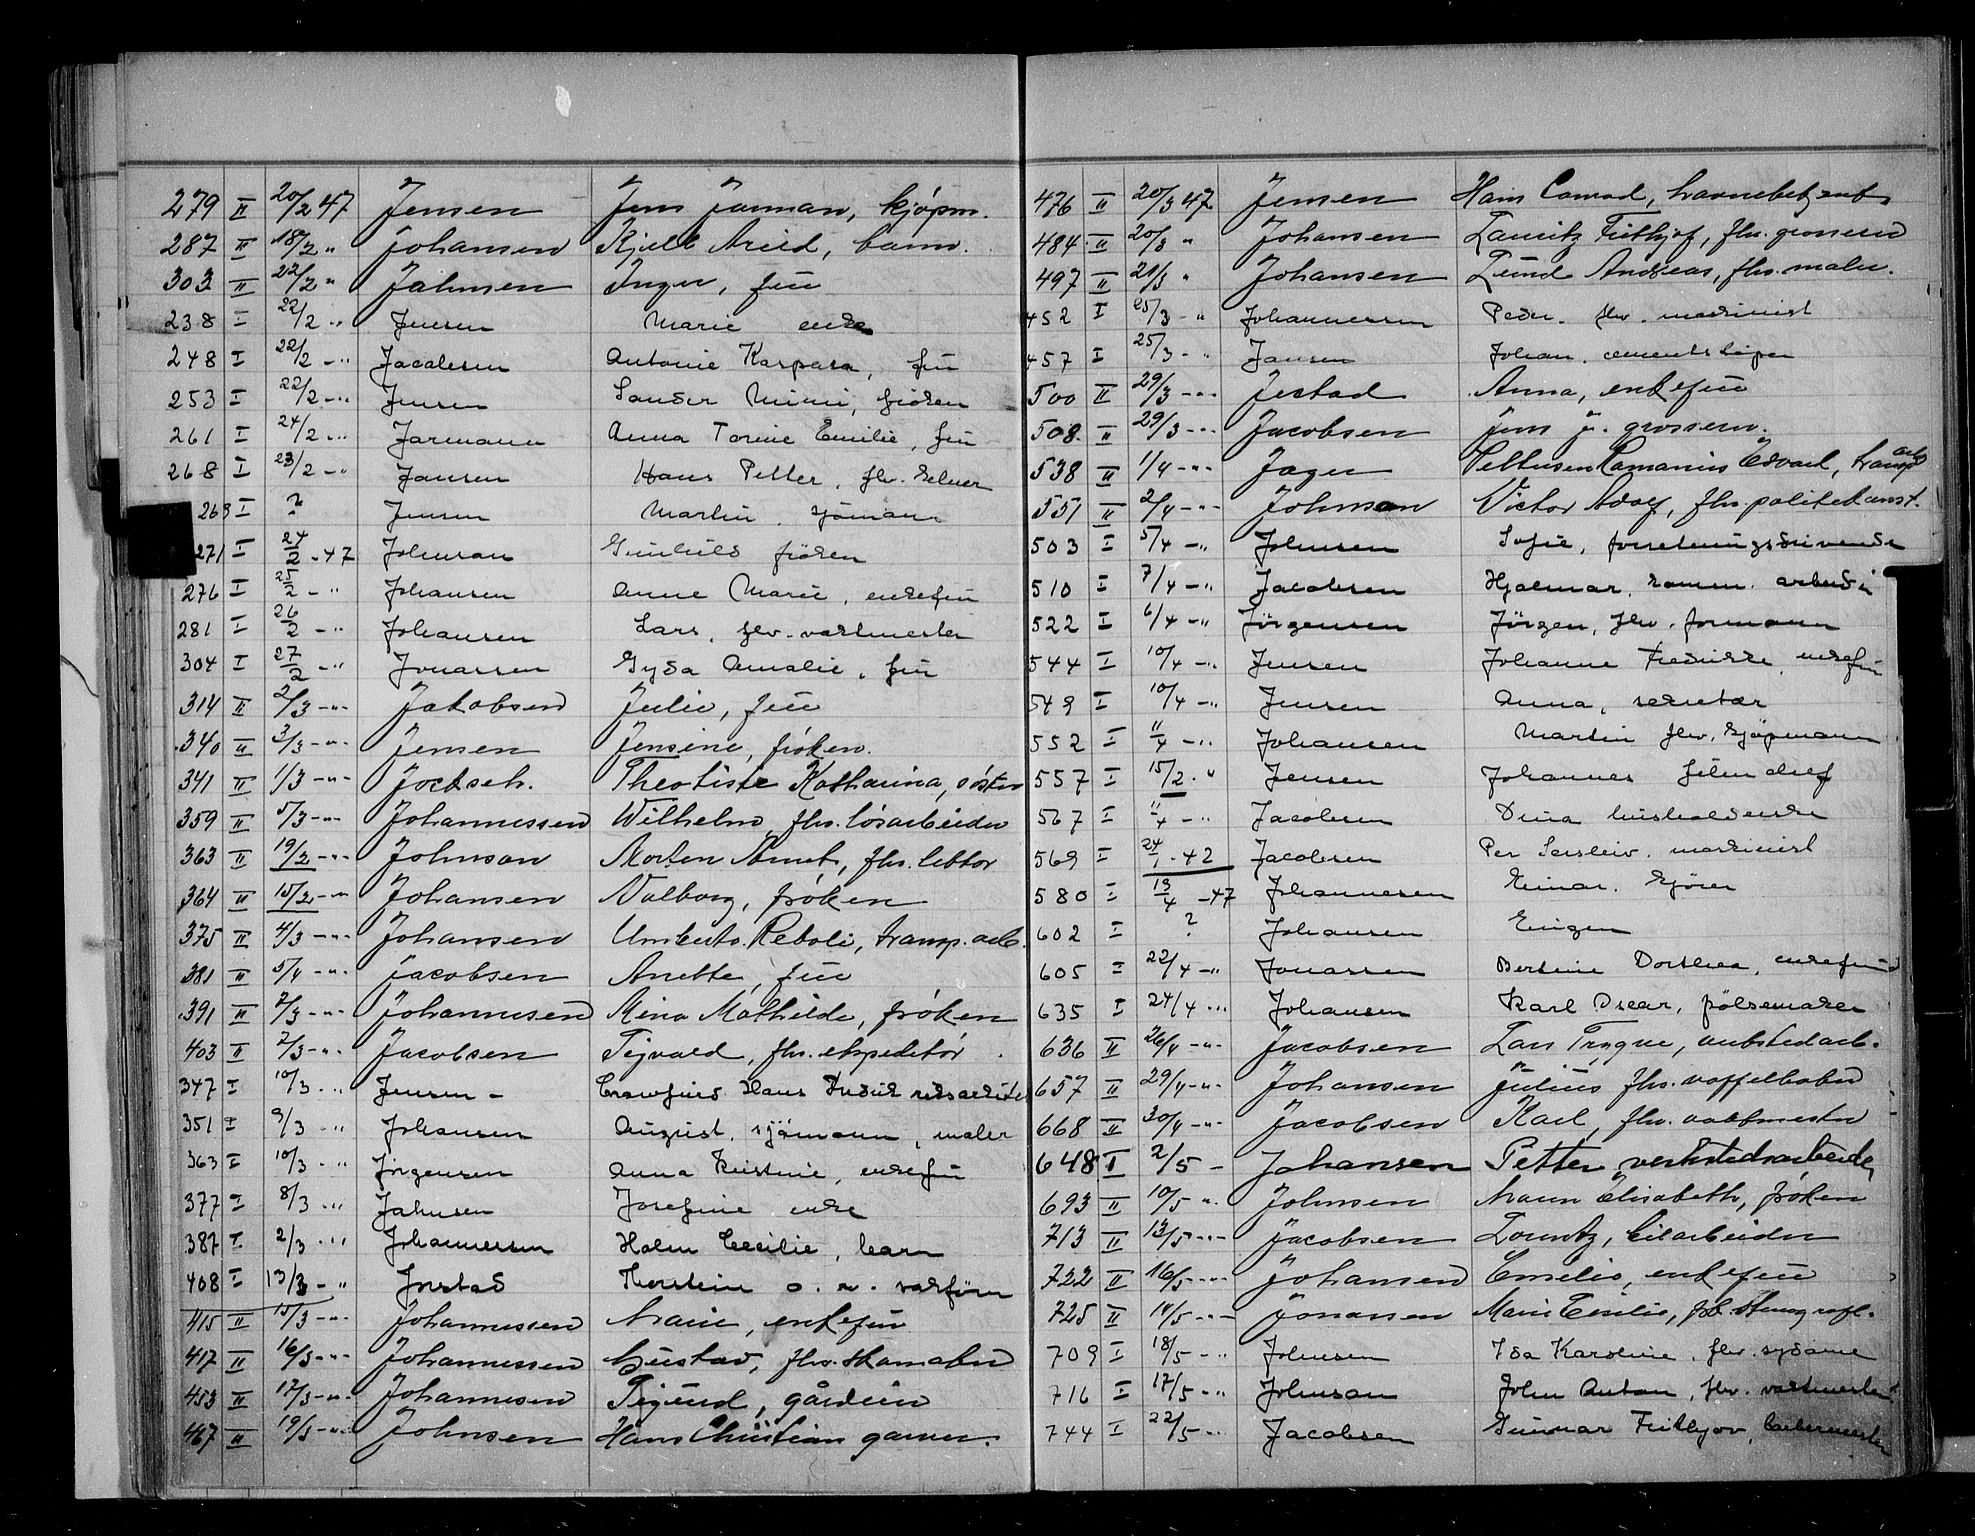 279 II 20/2 47 Jensen Jens Juman, kjøpm.
287 II 18/2 " Johansen Kjell Arild, barn.
303 II 22/2 " Jahnsen Inger, fru
238 I 22/2 - " Jensen Marie enke
248 I 22/2 - " Jacobsen Antonie Kaspara, fru
253 I 22/2 - " Jensen Sander Minni, frøken
261 I 24/2 - " Jarmann Anna Torine Emilie, fru
268 I 23/2 - " Jansen Hans Petter, fhv. kelner
269 I ? Jensen Martin, sjømann
271 I 24/2 - 47 Johnson Gunhild frøken
276 I 25/2 - " Johansen Anne Marie, enkefru
281 I 26/2 - " Johansen Lars, fhv. vaktmester
304 I 27/2 - " Jonassen Gyda Amalie, fru
314 II 2/3 - " - Jakobsen Julie, fru
340 II 3/3 - " - Jensen Jensine, frøken.
341 II 1/3 - " - Joctsch. Theotiste Katharina, søster
359 II 5/3 - " - Johannessen Wilhelm, fhv. løsarbeider
363 II 19/2 - " - Johnson Morten Arnt, fhv. lektor
364 II 15/2 - " Johansen Valborg, frøken
375 II 4/3 - " - Johansen Umberto Reboli, transp. arb.
381 II 5/4 - " - Jacobsen Anette, fru
391 II 7/3 - " - Johannesen Mina Mathilde, frøken
403 II 7/3 - " - Jacobsen Sigvald, fhv. ekspeditør.
347 I 10/3 - " Jensen - Hans Fredrik
351 I 9/3 - " Johansen August, sjømann, maler
363 I 10/3 - " Jørgensen Anna Kristine, enkefru
377 I 8/3 - " Jahnsen Josefine enke
387 I 2/3 - " Johannessen Holm Cecilie, barn
408 I 13/3 - " Jorstad Thorstein o. r. sakfører
415 II 15/3 - " - Johannessen Marie, enkefru
417 II 16/3 - " - Johannessen Gustav, fhv. skomaker
453 II 17/3 - " - Johannesen Sigurd, gårdein
467 II 19/3 - " - Johnsen Hans Christian garver.
476 II 20/3 47 Jensen Hans Conrad, havnebetjent
484 II 20/3 " Johansen Lauritz Frithjof, fhv. grosserer
497 II 21/3 " Johansen Lund Andreas, fhv. maler.
452 I 25/3 - " Johannessen Peder. fhv. maskinist
457 I 25/3 - " Jansen Johan. cementstøper
500 II 29/3 - " - Jestad Anna, enkefru
508. II 29/3 - " - Jacobsen Jens J. grosserer.
538 II 1/4 - " - Jager Pettersen Romanus Edvard, transp arb
551 II 2/4 - " - Johnson Victor Adolf, fhv. politikonst.
503 I 5/4 - " Johnsen Sofie, forretningsdrivende
510 I 7/4 - " Jacobsen Hjalmar, komm. arbeid
522 I 6/4 - " Jørgensen Jörgen, fhv. formann
544 I 10/4 - " Jensen Johanne Fredrikke, enkefru
549 I 10/4 - " Jensen Anna, sekretær
552 I 11/4 - " Johansen Martin fhv. kjøpmann
557 I 15/2 - " Jensen Johannes
567 I 11/4 - " Jacobsen Dina husholderske
569 I 24/1 - 42 Jacobsen Per maskinist
580 I 13/4 - 47 Johannesen Einar. kjører
602 I ? Johansen Eugen
605 I 22/4 - " Jonassen Bertine Dorthea, enkefru
635 I 24/4 - " Johansen Karl Oscar, pølsemaker
636 II 26/4 - " - Jacobsen Lars Trygve, verkstedarb.
657 II 29/4 - " - Johansen Julius fhv. vaffelbaker
668 II 30/4 - " - Jacobsen Karl, fhv. vaktmester
648 I 2/5 - Johansen Petter, verkstedsarbeider
693 II 10/5 " Johnsen Maren Elisabeth, frøken
713 II 13/5 - " - Jacobsen Lorentz, bilarbeider
722 II 16/5 - " - Johansen Emilie, enkefru
725 II 14/5 - " - Jonassen Marie Emilie, stenograf.
709 I 18/5 - " Johnsen Ida Karoline, fhv. sydame
716 I 17/5 - " Johnson John Anton, fhv. vaktmester
744 I 22/5 - " Jacobsen Gunnar Frithjov, bakermester